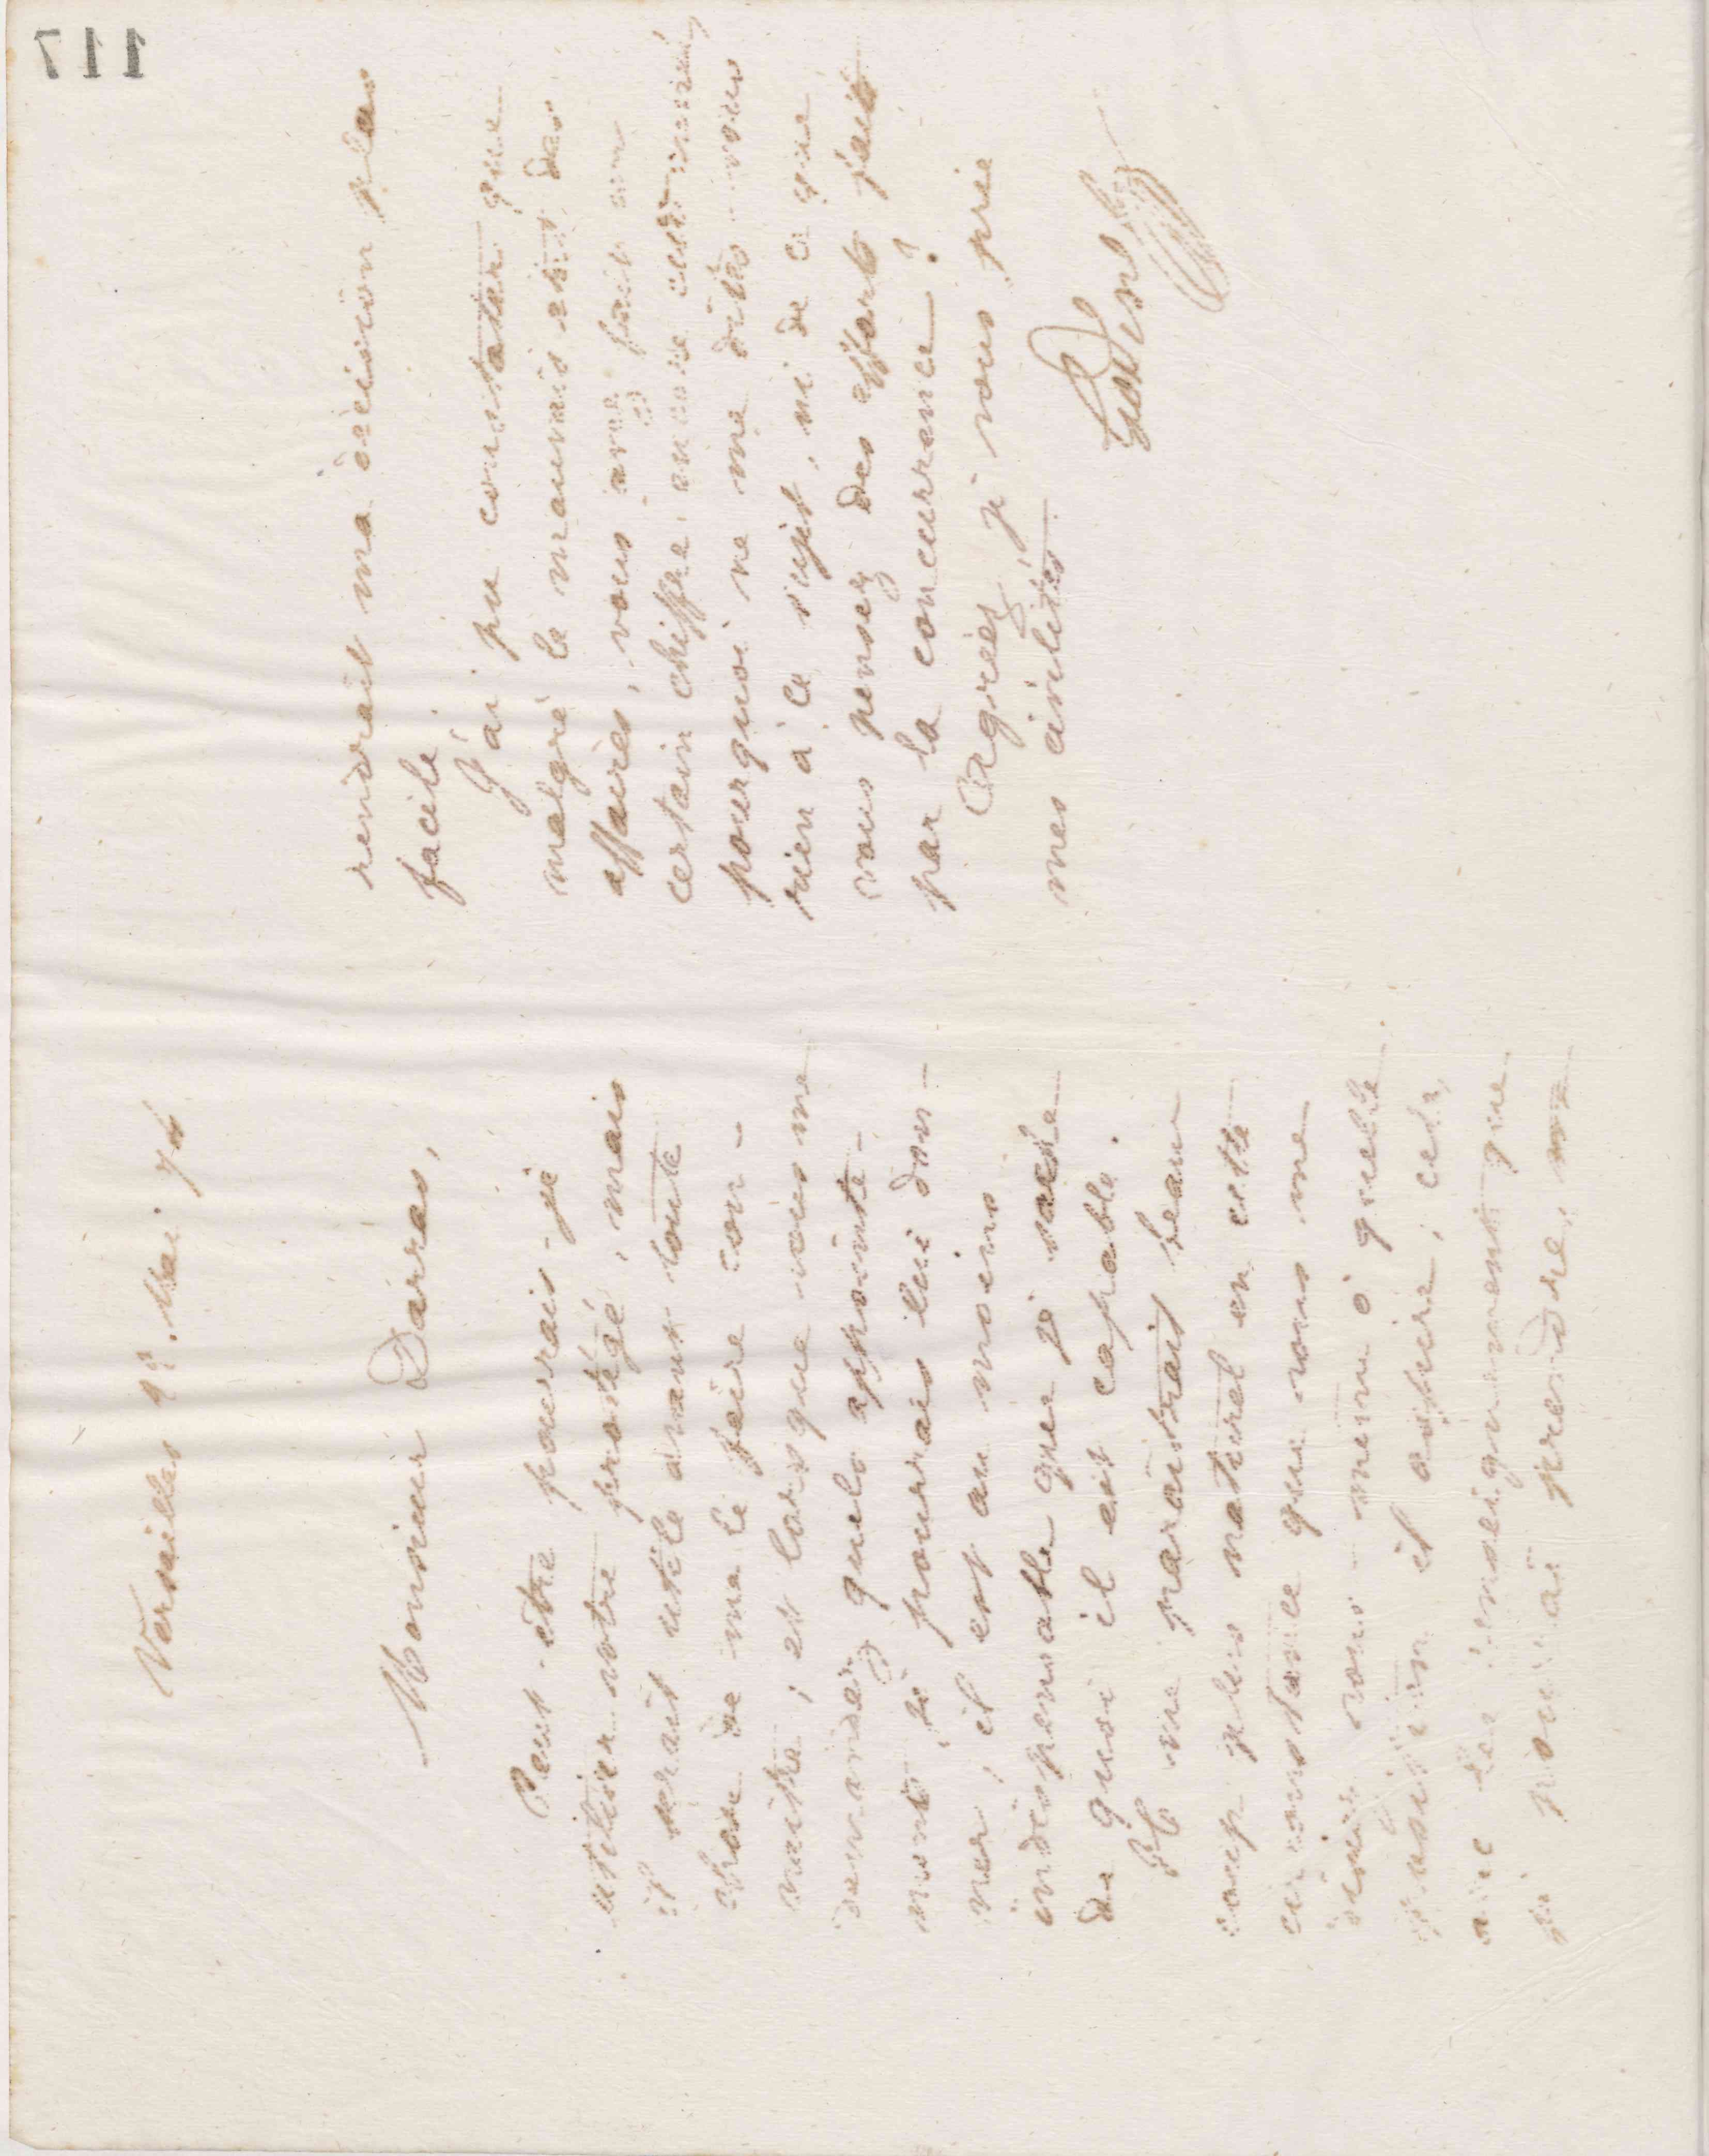 117
Versailles 9 Mai 74
Monsieur Dairas,
Peut-être pourrais-je
utiliser votre protégé, mais
il serait utile avant toute
chose de me le faire con-
naître ; et lorsque vous me
demandez quels appointe-
ments je pourrais lui don-
ner, il est au moins
indispensable que je sache
de quoi il est capable.
Il me paraîtrait beau
coup plus naturel en cette
circonstance que vous me
disiez vous-même à quelle
position il aspire ; cela,
avec les renseignements que
je pourrai prendre,
rendrait ma décision plus
facile.
J'ai pu constater que
malgré le mauvais état des
affaires, vous avez fait un
certain chiffre,
pourquoi ne me dites-vous
rien à ce sujet, ni de ce que
vous pensez des efforts faits
par la concurrence ?
Agréez, je vous prie
mes civilités
Godin